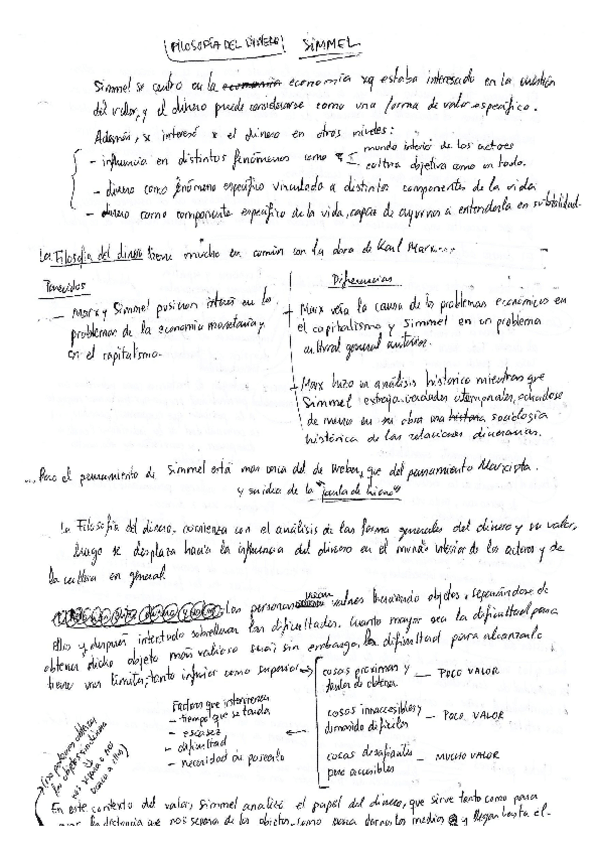 FILOSOFÍA DEL DINERO SIMMEL
Simmel se centró en la economía xq estaba interesado en la cuestión
del valor, y el dinero puede considerarse como una forma de valor específico.
Además, se interesó x el dinero en otros niveles:
- influencia en distintos fenómenos como mundo interior de los actores
cultura objetiva como un todo.
- dinero como fenómeno específico vinculado a distintos componentes de la vida
- dinero como componente específico de la vida, capaz de ayudarnos a entenderla en su totalidad.
La Filosofía del dinero tiene mucho en común con la obra de Karl Marx...
Parecidos
Diferencias
- Marx y Simmel pusieron interés en los
problemas de la economía monetaria y
en el capitalismo.
+ Marx veía la causa de los problemas económicos en
el capitalismo y Simmel en un problema
cultural general anterior.
+ Marx hizo un análisis histórico mientras que
Simmel extrajo verdades atemporales, echándose
de menos en su obra una sociología
histórica de las relaciones dinerarias.
... Pero el pensamiento de Simmel está más cerca del de Weber, que del pensamiento Marxista.
y su idea de la "jaula de hierro"
La Filosofía del dinero, comienza con el análisis de las forma generales del dinero y su valor,
luego se desplaza hacia la influencia del dinero en el mundo interior de los actores y de
la cultura en general.
Las personas crean valores haciendo objetos, separándose de
ellos y después intentado sobrellevar las dificultades. Cuanto mayor sea la dificultad para
obtener dicho objeto más valioso será; sin embargo, la dificultad para alcanzarlo
tiene unos límites, tanto inferior como superior
cosas próximas y
fáciles de obtener — POCO VALOR
cosas innaccesibles y
demasiado difíciles — POCO VALOR
cosas desafiantes
pero accesibles — MUCHO VALOR
Factores que intervienen
- tiempo que se tarda
- escasez
- dificultad
- necesidad de poseerlo
En este contexto del valor, Simmel analizó el papel del dinero, que sirve tanto como para
la distancia que nos separa de los objetos, como para darnos los medios y llegar hasta él.